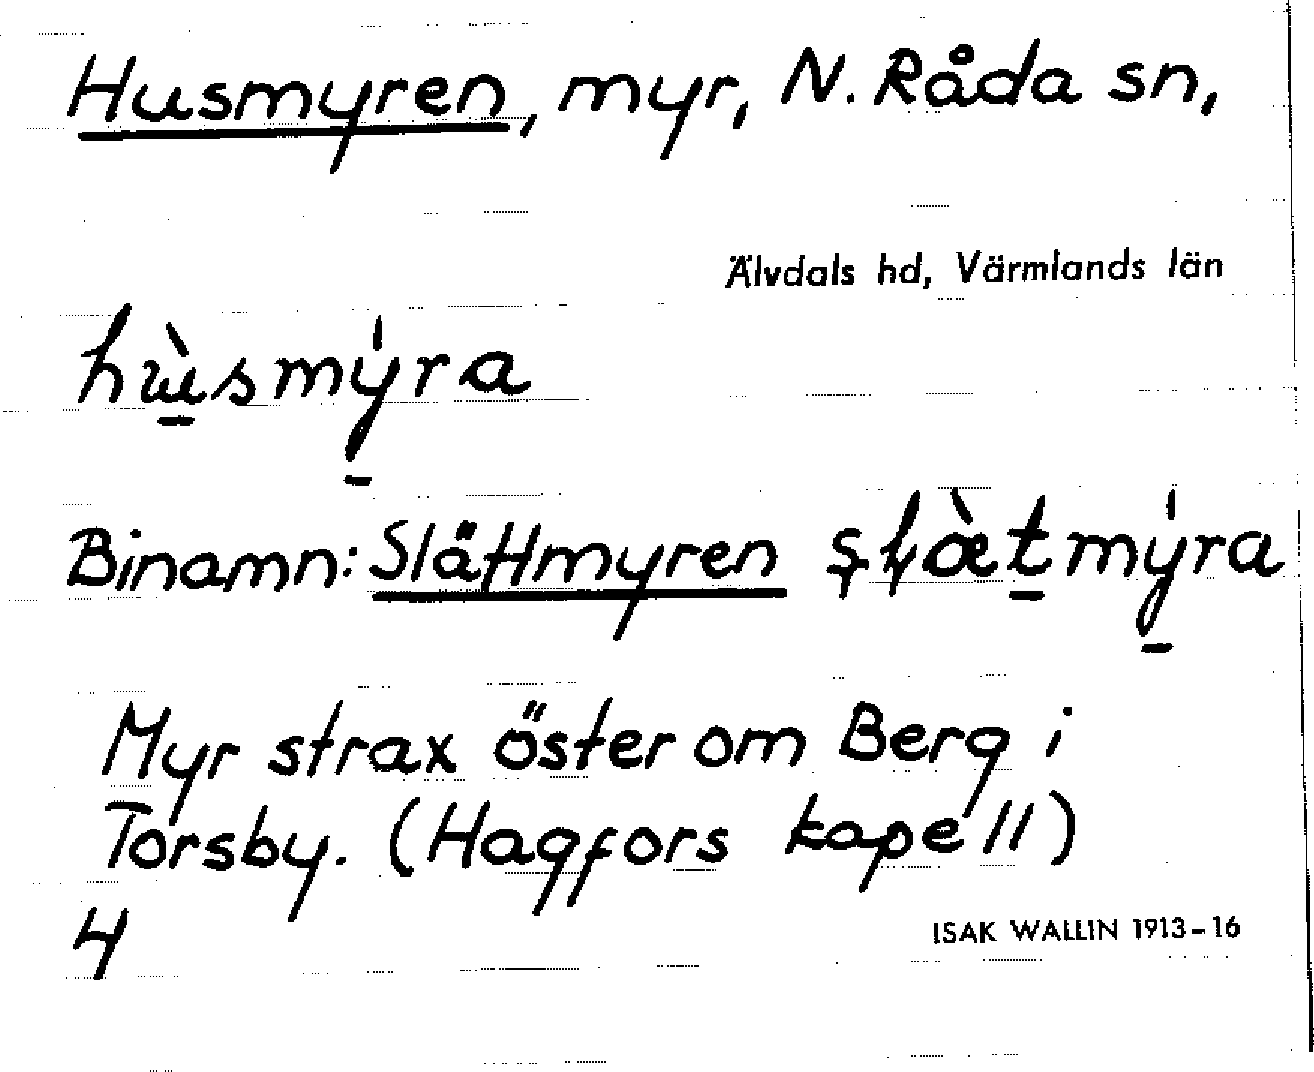 Husmyren, myr, N. Råda sn,
Älvdals hd, Värmlands län
hùsmýra
Binamn: Slåttmyren şłæ̀tmýra
Myr strax öster om Berg i
Torsby. (Hagfors kapell)
4
ISAK WALLIN 1913-16